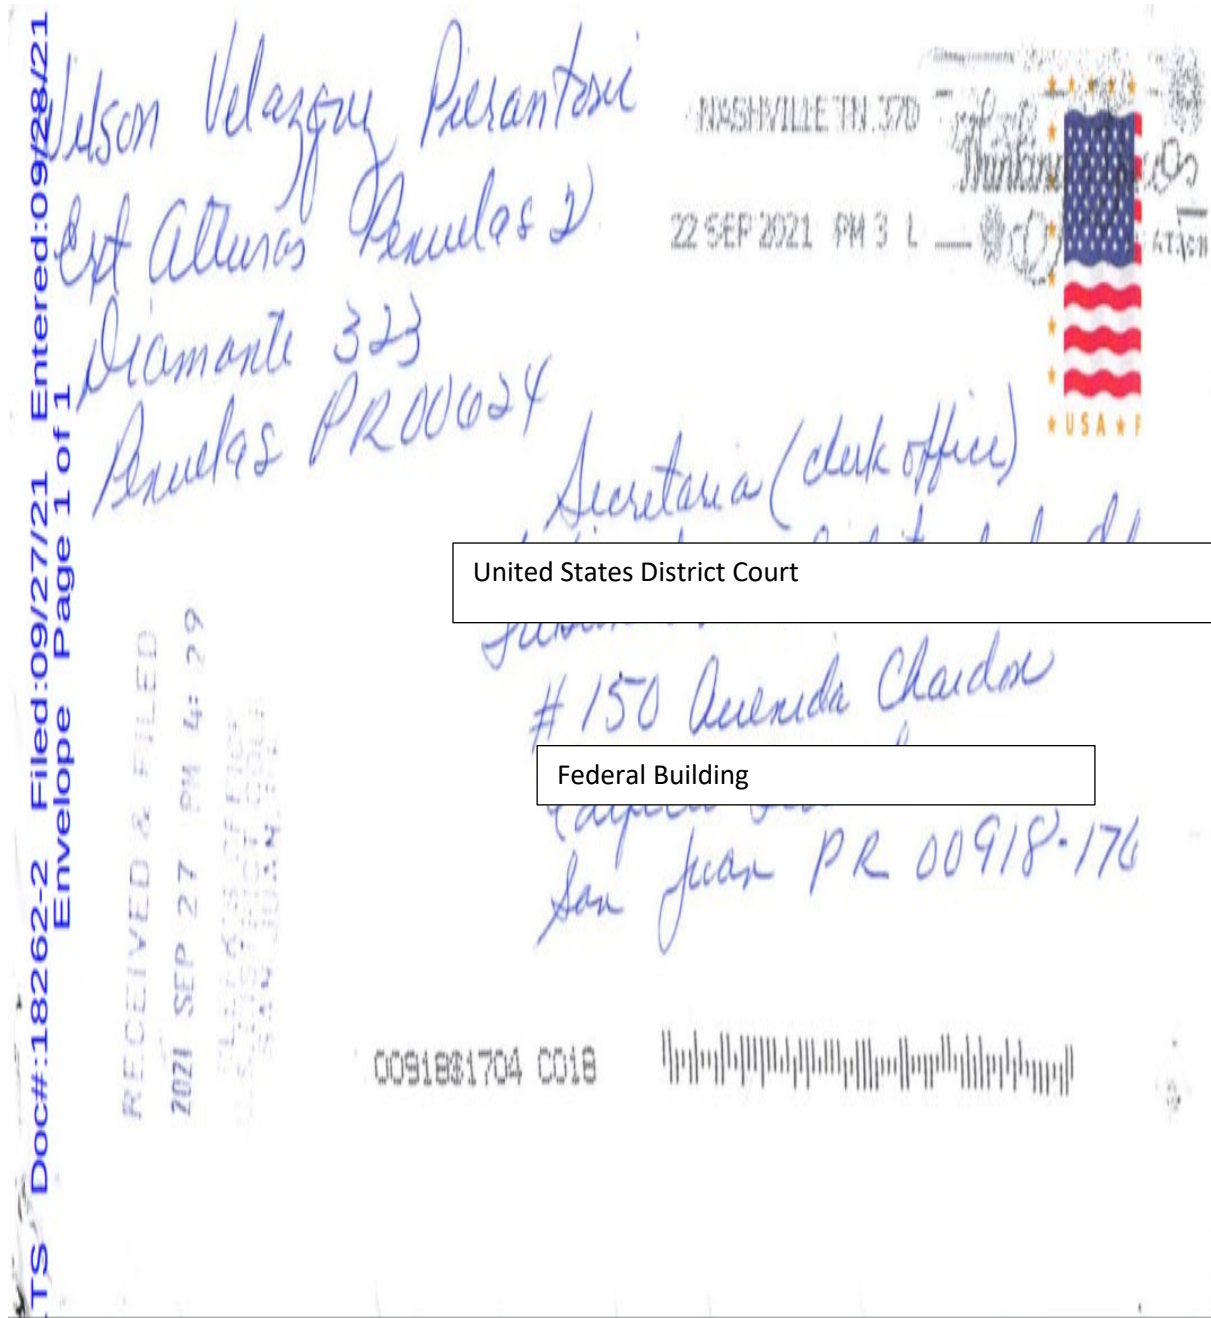 -TS Doc#:18262-2 Filed:09/27/21 Entered:09/28/21
Envelope Page 1 of 1
Wilson Velazquez Pierantoni
Ext Alturas Penuelas 2
Diamante 323
Penuelas PR 00624
NASHVILLE TN 370
22 SEP 2021 PM 3 L
USA F
Secretaria (clerk office)
United States District Court
#150 Avenida Chardon
Federal Building
San Juan PR 00918-176
RECEIVED & FILED
2021 SEP 27 PM 4:29
CLERK'S OFFICE
SAN JUAN
00918$1704 C018